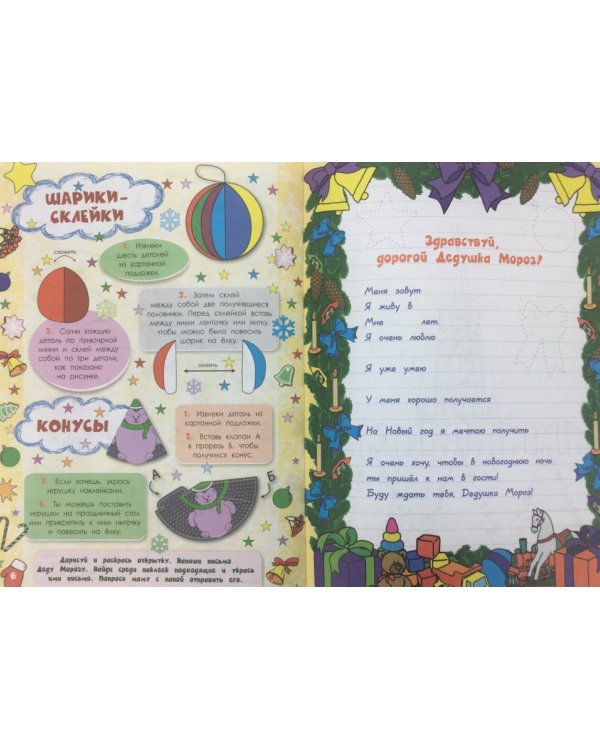 ШАРИКИ-
СКЛЕЙКИ
1. Извлеки
шесть деталей
из картонной
подложки.
сложить
2. Согни каждую
деталь по пунктирной
линии и склей между
собой по три детали,
как показано
на рисунке.
3. Затем склей
между собой две получившиеся
половинки. Перед склейкой вставь
между ними ленточку или нитку,
чтобы можно было повесить
шарик на ёлку.
склеить
КОНУСЫ
1. Извлеки деталь из
картонной подложки.
2. Вставь клапан А
в прорезь Б, чтобы
получился конус.
3. Если хочешь, укрась
игрушку наклейками.
4. Ты можешь поставить
игрушки на праздничный стол
или прикрепить к ним ниточку
и повесить на ёлку.
А
Б
Дорисуй и раскрась открытку. Напиши письмо
Деду Морозу. Найди среди наклеек подходящие и укрась
ими письмо. Попроси маму с папой отправить его.
6
Здравствуй,
дорогой Дедушка Мороз!
Меня зовут
Я живу в
Мне лет.
Я очень люблю
Я уже умею
У меня хорошо получается
На Новый год я мечтаю получить
Я очень хочу, чтобы в новогоднюю ночь
ты пришёл к нам в гости!
Буду ждать тебя, Дедушка Мороз!